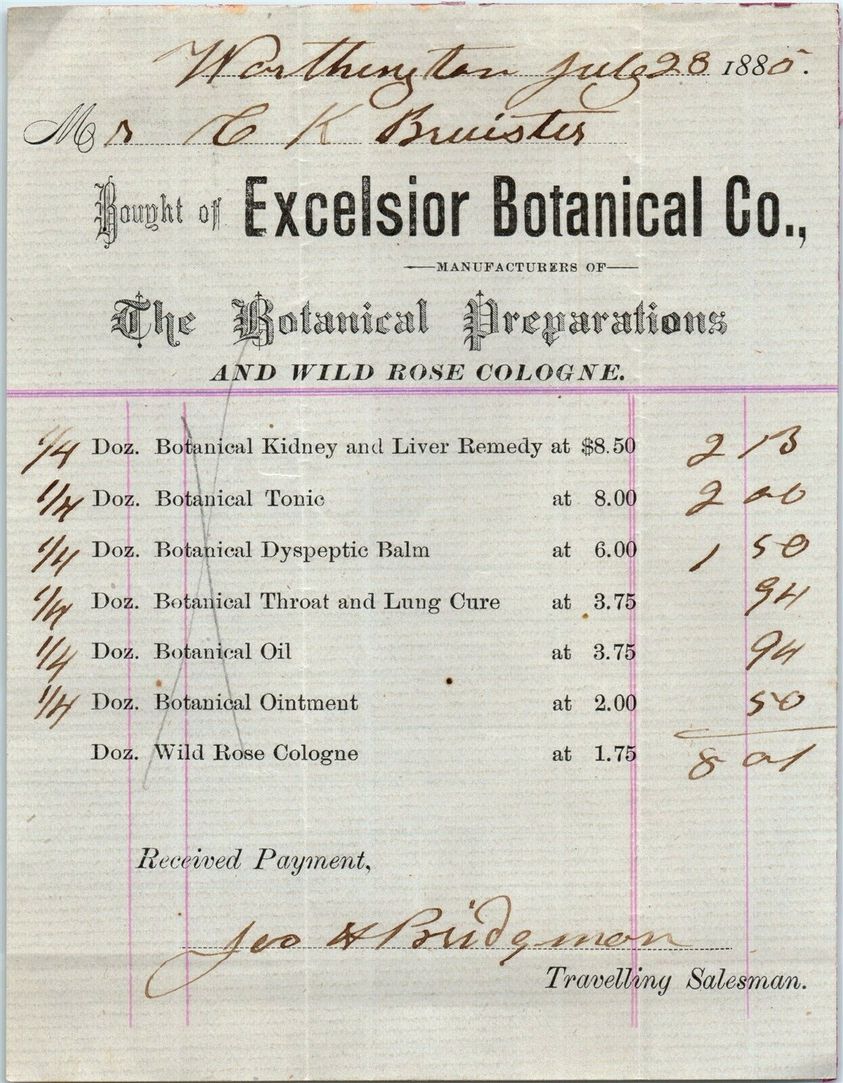 Worthington July 28 1885.
Mrs C K Bruister
Bought of Excelsior Botanical Co.,
MANUFACTURERS OF
The Botanical Preparations
AND WILD ROSE COLOGNE.
1/4 Doz. Botanical Kidney and Liver Remedy at $8.50 2 13
1/4 Doz. Botanical Tonic at 8.00 2 00
1/4 Doz. Botanical Dyspeptic Balm at 6.00 1 50
1/4 Doz. Botanical Throat and Lung Cure at 3.75 94
1/4 Doz. Botanical Oil at 3.75 94
1/4 Doz. Botanical Ointment at 2.00 50
Doz. Wild Rose Cologne at 1.75 8 01
Received Payment,
Geo H Bridgman
Travelling Salesman.